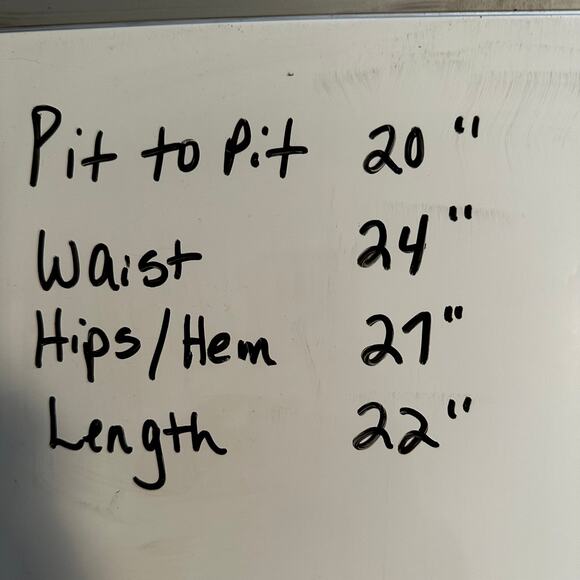 Pit to Pit 20"
Waist 24"
Hips/Hem 27"
Length 22"